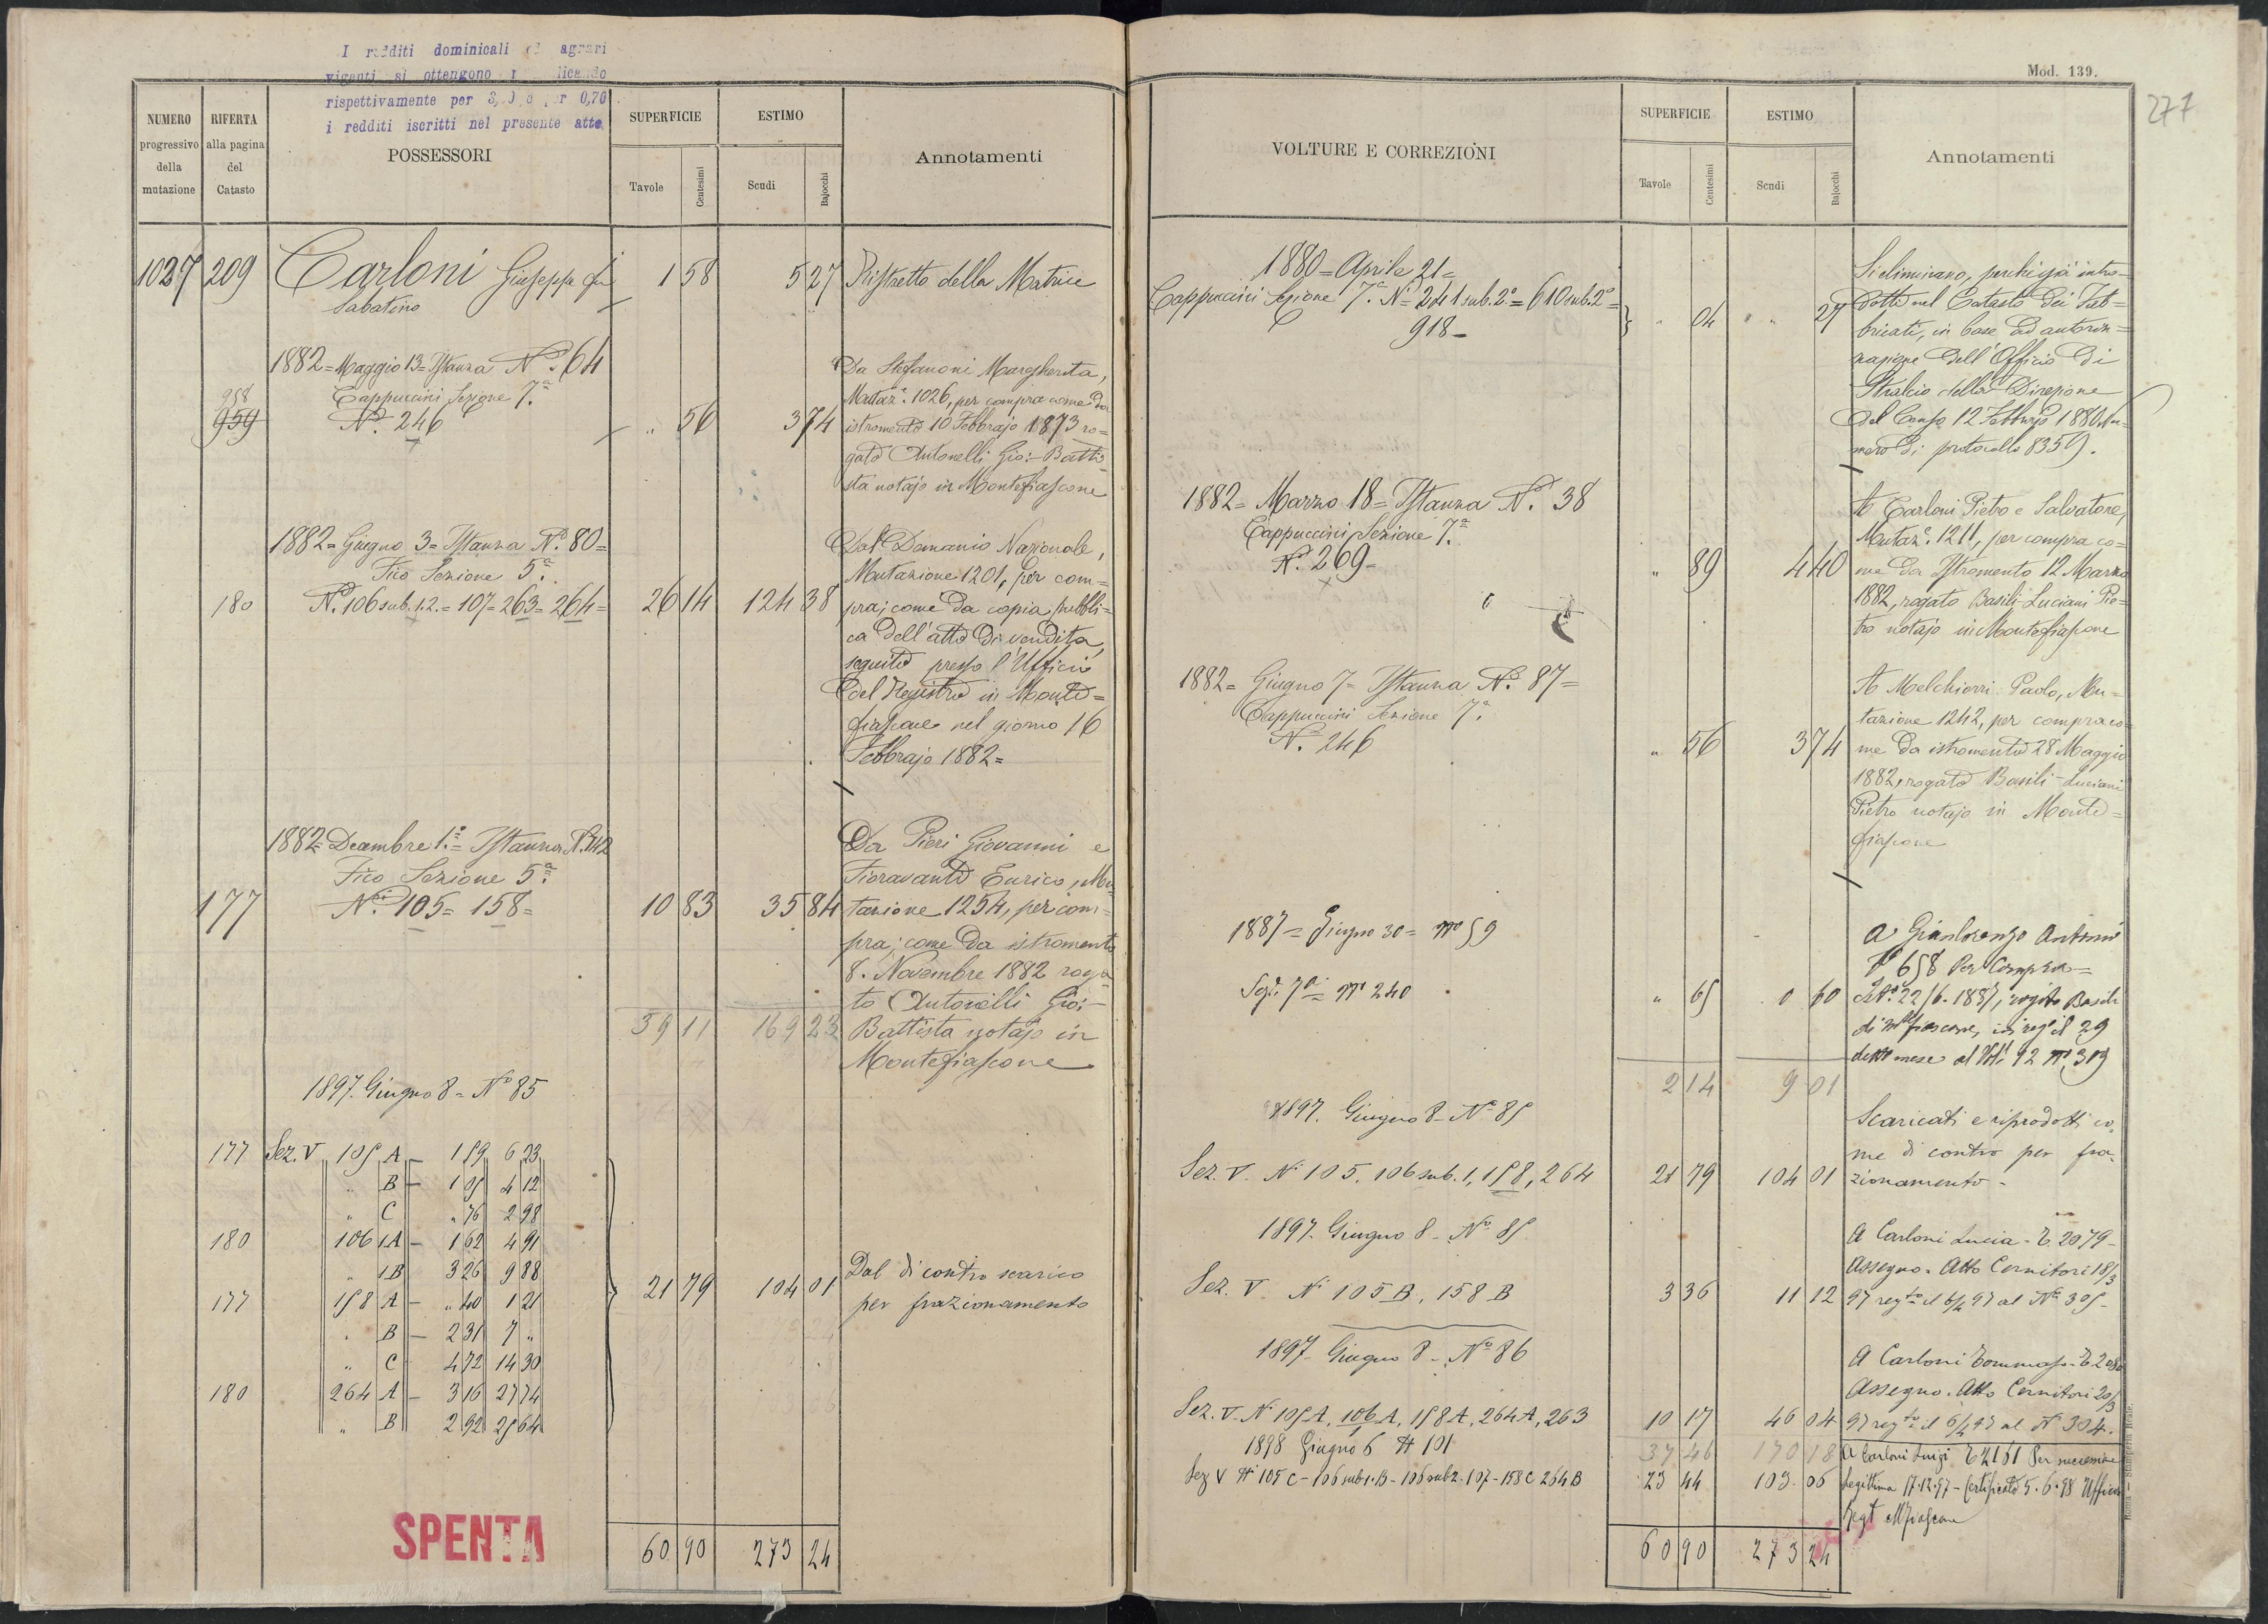 I redditi dominicali ed agrari
viganti si ottengono
rispettivamente per 0,70
i redditi iscritti nel presente atto
NUMERO progressivo della mutazione
RIFERTA alla pagina del Catasto
POSSESSORI
SUPERFICIE
Tavole Centesimi
ESTIMO
Scudi Bajocchi
Annotamenti
1027 209 Carloni Giuseppe fu 1 58 5 27 Ristretto della Matrice
Sabatino
1882 = Maggio 13 = Istanza N.º 64
Cappuccini Sezione 7.ª
958
959 N.º 246 " 56 3 74
Da Stefanoni Margherita,
Mutaz.e 1026, per compra come da
istromento 10 Febbrajo 1873 ro=
gato Antonelli Gio:- Batti=
sta notajo in Montefiascone
1882 = Giugno 3 = Istanza N.º 80 =
Fico Sezione 5.ª
180 N.i 106 sub. 1.2. = 107 = 263 = 264 = 26 14 124 38
Dal Demanio Nazionale,
Mutazione 1201, per com=
pra; come da copia pubbli=
ca dell'atto di vendita,
seguito presso l'Ufficio
del Registro in Monte=
fiascone nel giorno 16
Febbrajo 1882 =
1882 = Decembre 1.º = Istanza N. 142
Fico Sezione 5.ª
177 N.i 105 = 158 = 10 83 35 84
Da Pieri Giovanni e
Fioravanti Enrico, Mu=
tazione 1254, per com=
pra; come da istromento
8. Novembre 1882 roga
to Antonelli Gio:-
Battista notajo in
Montefiascone
39 11 169 23
1897. Giugno 8 = Nº 85
177 Sez. V 105 A – 1 89 6 23
" B – 1 05 4 12
" C " 76 2 98
180 106 1A – 1 62 4 91
" 1B 3 26 9 88
177 158 A – " 40 1 21
" B – 2 31 7 "
" C 4 72 14 30
180 264 A – 3 16 27 74
" B 2 92 25 64
21 79 104 01 Dal di contro scarico
per frazionamento
SPENTA
60 90 273 24
Mod. 139.
277
VOLTURE E CORREZIONI
SUPERFICIE
Tavole Centesimi
ESTIMO
Scudi Bajocchi
Annotamenti
1880 = Aprile 21 =
Cappuccini Sezione 7.ª N.i = 241 sub. 2º = 610 sub. 2º =
918 – " 04 " 27
Si eliminano, perchè già intro=
dotti nel Catasto dei Fab=
bricati, in base ad autoriz=
zazione dell'Officio di
Stralcio della Direzione
del Censo 12 Febbrajo 1880 Nu=
mero di protocollo 8359.
1882 = Marzo 18 = Istanza N.º 38
Cappuccini Sezione 7.ª
N.º 269 – " 89 4 40
A Carloni Pietro e Salvatore,
Mutaz.e 1211, per compra co=
me da Istromento 12 Marzo
1882, rogato Basili-Luciani Pie=
tro notajo in Montefiascone
1882 = Giugno 7 = Istanza N.º 87 =
Cappuccini Sezione 7.ª
N.º 246 " 56 3 74
A Melchiorri Paolo, Mu=
tazione 1242, per compra co=
me da istromento 28 Maggio
1882, rogato Basili-Luciani
Pietro notajo in Monte=
fiascone
1887 = Giugno 30 = Nº 59
Sez. 7ª = Nº 240 " 65 0 60
A Gianlorenzo Antonio
658 Per Compra =
22/6. 1887, rogito Basili
di Mfiascone, il 29
detto mese al Vol. 12 Nº 313
2 14 9 01
1897. Giugno 8 – Nº 85
Sez. V. Nⁱ 105, 106 sub. 1, 158, 264 21 79 104 01
Scaricati e riprodotti co=
me di contro per fra=
zionamento –
1897. Giugno 8 – Nº 85
Sez. V. Nⁱ 105 B, 158 B 3 36 11 12
A Carloni Lucia – T. 2079 –
Assegno. Atto Cernitori 18/3
97 reg.to il 6/4 97 al Nº 305 –
1897 – Giugno 8 – Nº 86
Sez. V. Nⁱ 105 A, 106 A, 158 A, 264 A, 263 10 17 46 04
A Carloni Tommaso – T. 2080
Assegno. Atto Cernitori 20/3
97 reg.to il 6/4 97 al Nº 304.
37 46 170 18
1898 Giugno 6 Nº 101
Sez V Nⁱ 105 C – 106 sub 1. B – 106 sub 2 – 107 – 158 C 264 B 23 44 103. 06
A Carloni Luigi T 2161 Per successione
legittima 17.12.97 – Certificato 5. 6. 98 Ufficio
Regt Mfiascone
60 90 273 24
Roma – Stamperia Reale.